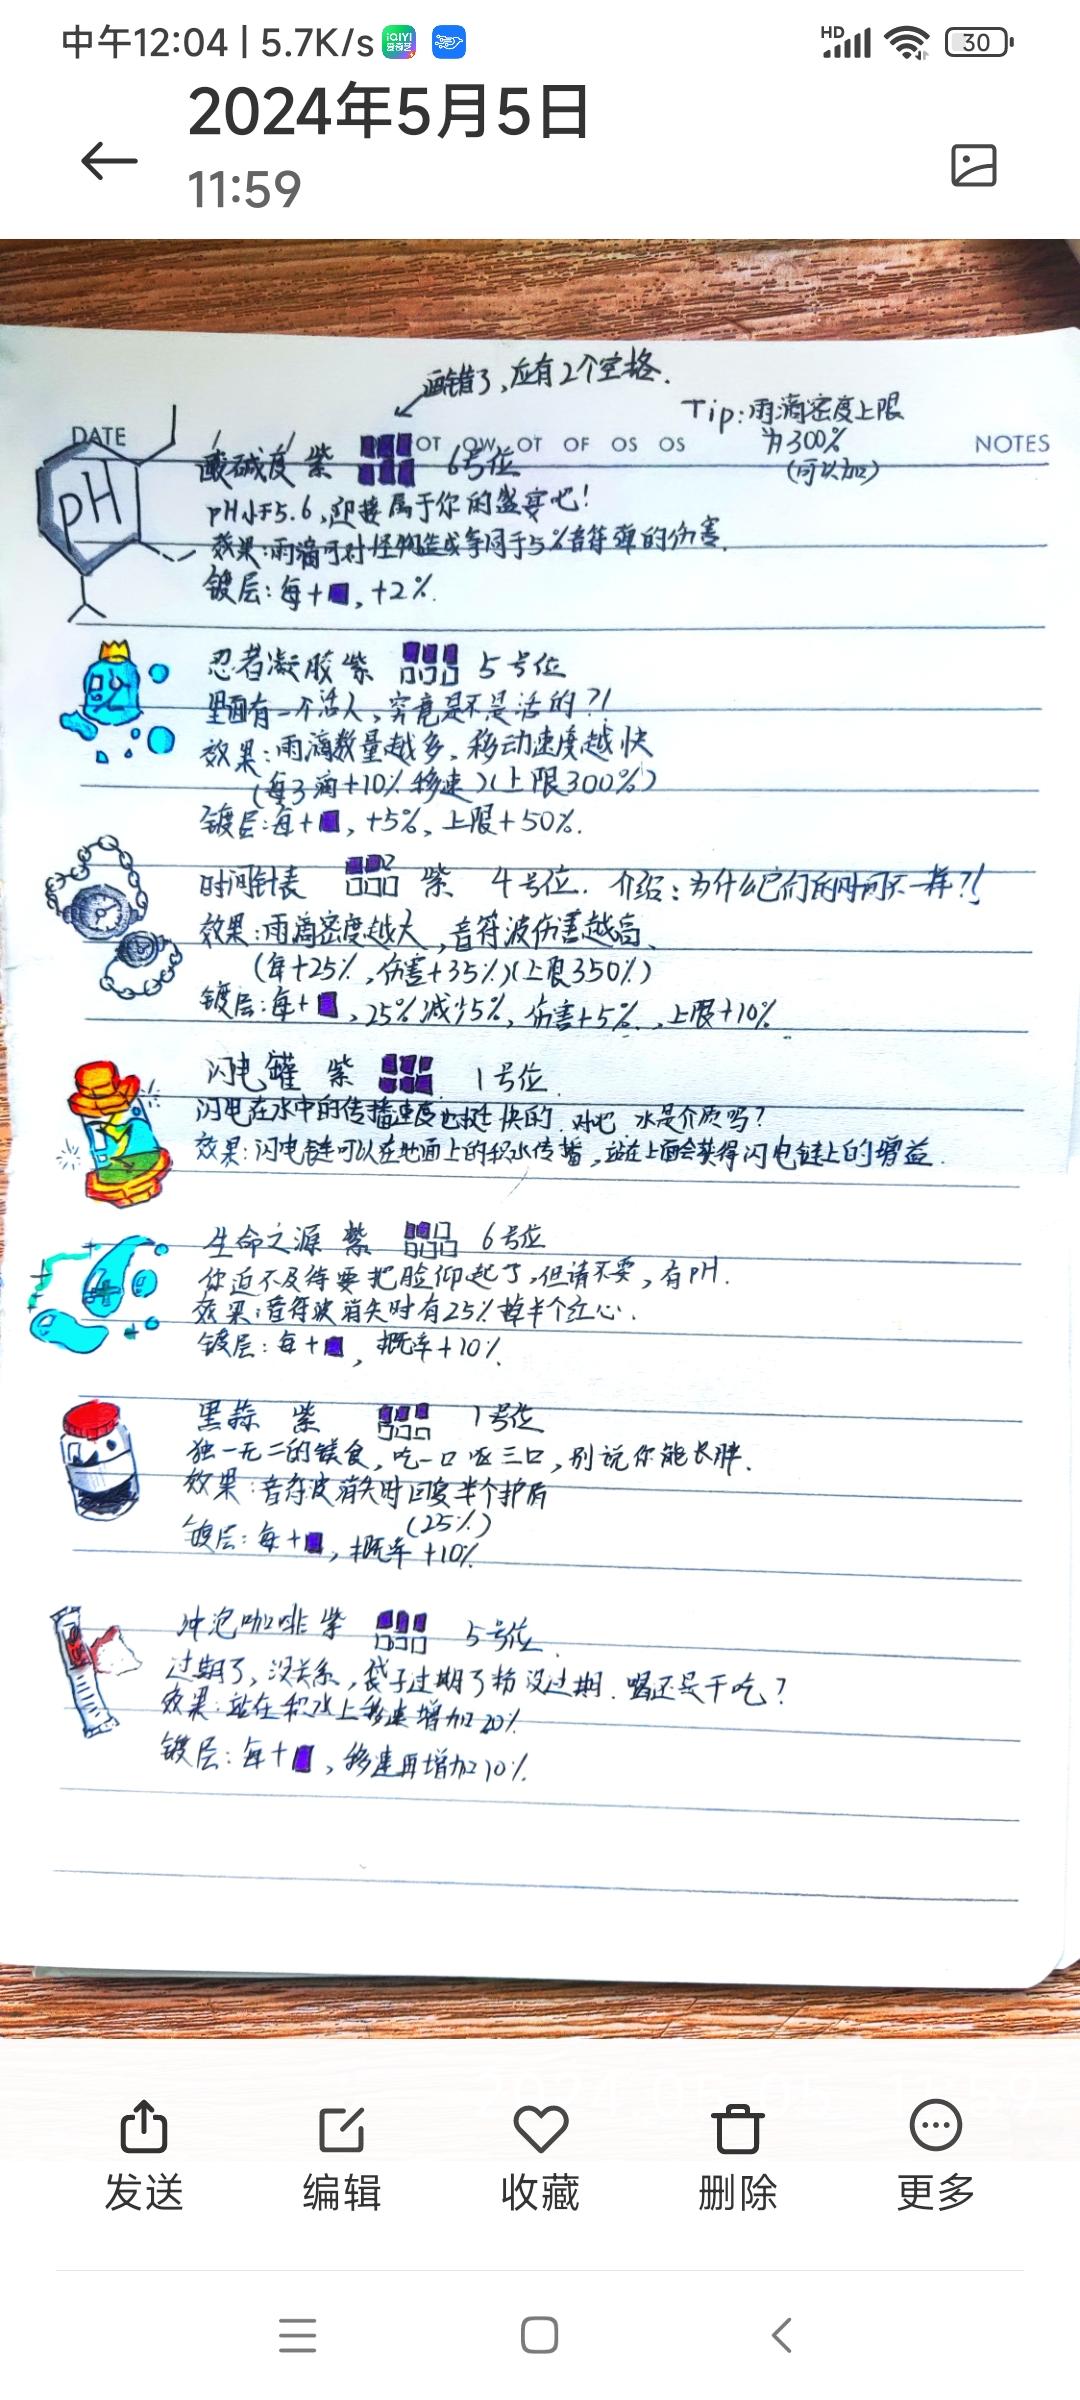 中午12:04 | 5.7K/s
HD
30
2024年5月5日
11:59
画错了,应有2个空格.
Tip:雨滴密度上限
为300%
(可以加)
DATE
OT OW OT OF OS OS
NOTES
pH
酸碱度 紫 6号位
pH小于5.6,迎接属于你的盛宴吧!
效果:雨滴可对怪物造成等同于5%音符弹的伤害.
镀层:每+,+2%.
忍者凝胶 紫 5号位
里面有一个活人,究竟是不是活的?!
效果:雨滴数量越多,移动速度越快
(每3滴+10%移速)(上限300%)
镀层:每+,+5%,上限+50%.
时间针表 紫 4号位. 介绍:为什么它们的时间不一样?!
效果:雨滴密度越大,音符波伤害越高、
(每+25%,伤害+35%)(上限350%)
镀层:每+,25%减少5%,伤害+5%,上限+10%
闪电罐 紫 1号位
闪电在水中的传播速度也挺快的.对吧 水是介质吗?
效果:闪电链可以在地面上的积水传播,站在上面会获得闪电链上的增益.
生命之源 紫 6号位
你迫不及待要把脸仰起了,但请不要,有pH.
效果:音符波消失时有25%掉半个红心.
镀层:每+,概率+10%
黑蒜 紫 1号位
独一无二的美食,吃一口呕三口,别说你能长胖.
效果:音符波消失时回复半个护盾
(25%)
镀层:每+,概率+10%
冲泡咖啡 紫 5号位
过期了,没关系,袋子过期了粉没过期.喝还是干吃?
效果:站在积水上移速增加20%
镀层:每+,移速再增加10%.
发送 编辑 收藏 删除 更多